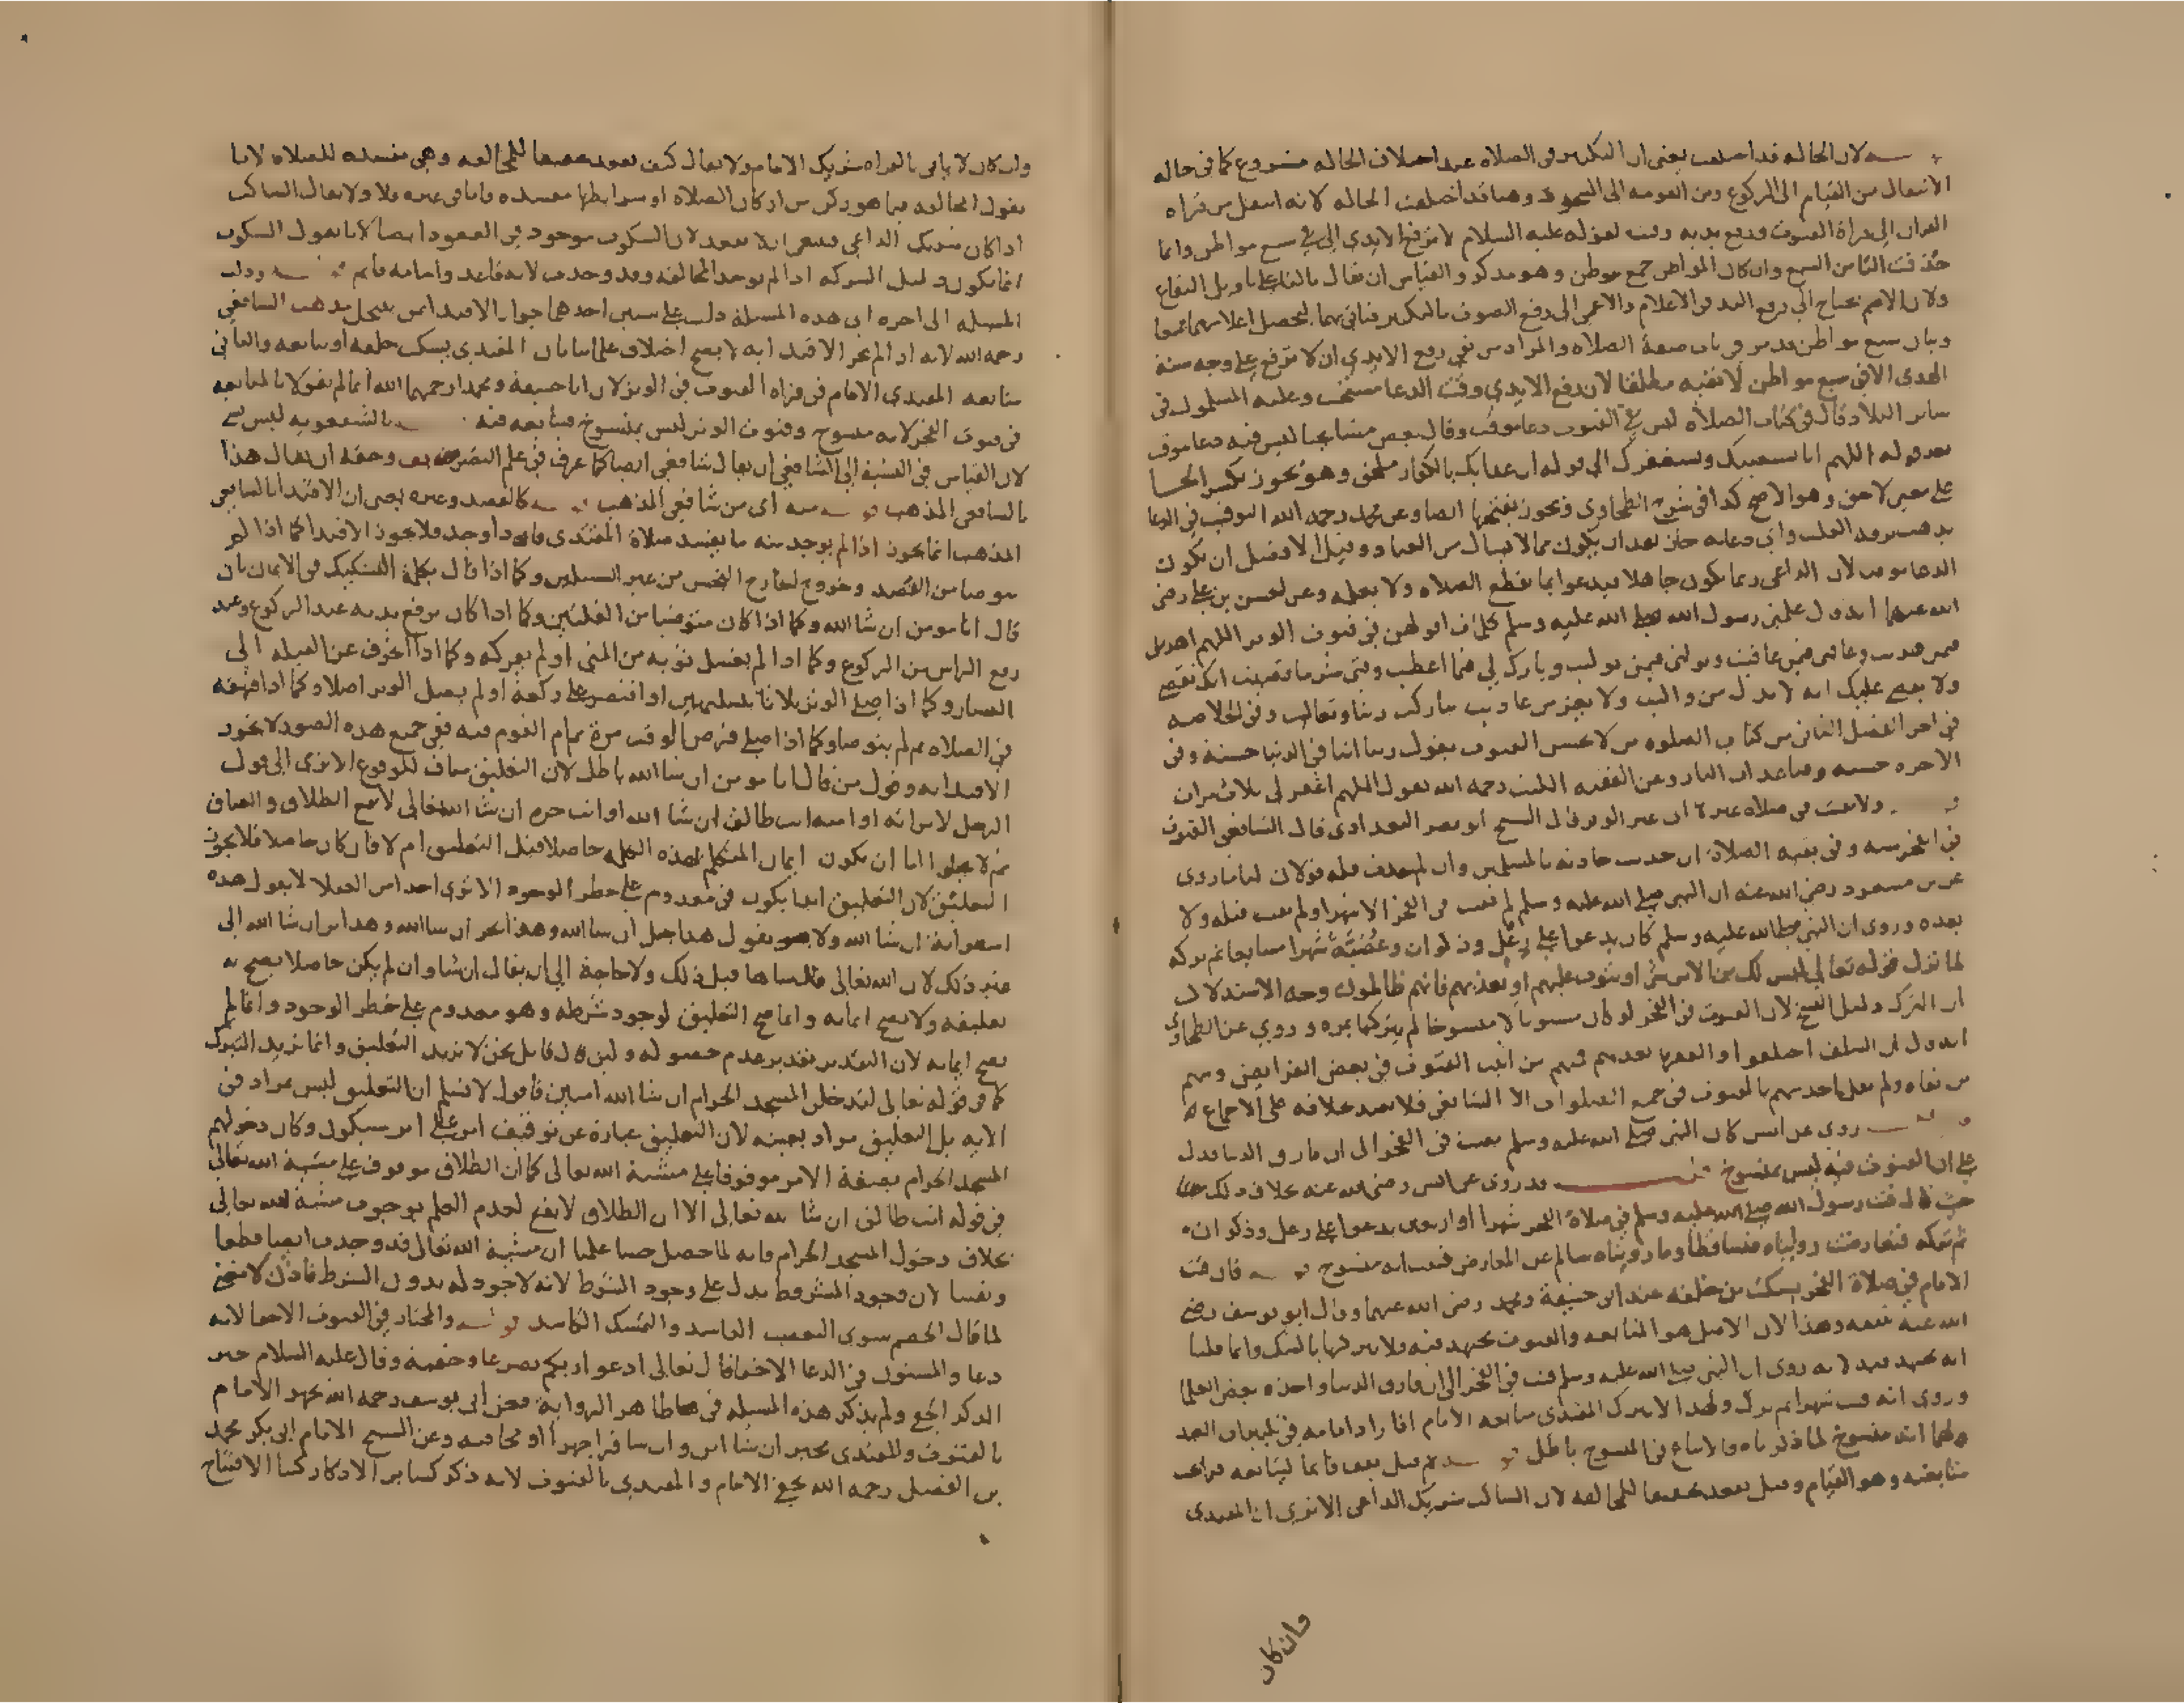 لان الحاله قد اختلفت يعني ان التكبير في الصلاه عند اختلاف الحاله مشروع كما في حاله
الانتقال من القيام الى الركوع ومن القومه الى السجود وههنا قد اختلفت الحاله لانه انتقل من قراه
القران الى قراة القنوت ورفع يديه وقنت لقوله عليه السلام لا ترفع الايدي الا في سبع مواطن وانما
حذفت التا من السبع وان كان المواطن جمع موطن وهو مذكر والقياس ان يقال بالتا على تاويل البقاع
ولان الاصم يحتاج الى رفع اليد في الاعلام والاعمى الى رفع الصوت بالتكبير فياتي بهما ليحصل اعلامهما جميعا
وبيان سبع مواطن قد مر في باب صفة الصلاه والمراد من نفي رفع الايدي ان لا ترفع على وجه سنة
الهدى الا في سبع مواطن لا نفيه مطلقا لان رفع الايدي وقت الدعا مستحب وعليه المسلمون في
ساير البلاد وقال في كتاب الصلاه ليس في القنوت دعا موقت وقال بعض مشايخنا ليس فيه دعا موقت
بعد قوله اللهم انا نستعينك ونستغفرك الى قوله ان عذابك بالكفار ملحق وهو يجوز بكسر الحا
على معنى لاحق وهو الاصح كذا في شرح الطحاوي ويجوز بفتحها ايضا وعن محمد رحمه الله التوقيت في الدعا
يذهب برقة القلب واي دعا به جاز بعد ان يكون مما لا يسال من العباد وقيل الافضل ان يكون
الدعا موقتا لان الداعي ربما يكون جاهلا فيدعوا بما يقطع الصلاه ولا يعلمه وعن لحسن بن علي رضي
الله عنهما انه قال علمني رسول الله صلى الله عليه وسلم كلمات اقولهن في قنوت الوتر اللهم اهدني
فيمن هديت وعافني فيمن عافيت وتولني فيمن توليت وبارك لي فيما اعطيت وقني شر ما قضيت انك تقضي
ولا يقضى عليك انه لا يذل من واليت ولا يعز من عاديت تباركت ربنا وتعاليت وفي الخلاصه
في اخر الفصل الثاني من كتاب الصلوه من لا يحسن القنوت يقول ربنا اتنا في الدنيا حسنة وفي
الاخره حسنه وقنا عذاب النار وعن الفقيه ابي الليث رحمه الله يقول اللهم اغفر لي ثلاث مرات
ولا يقنت في صلاه غيرها اي غير الوتر قال الشيخ ابو نصر البغدادي قال الشافعي القنوت
في الفجر سنه وفي بقيه الصلاة ان حدث حادثه بالمسلمين وان لم يحدث فله قولان لنا ما روي
عن بن مسعود رضي الله عنه ان النبي صلى الله عليه وسلم لم يقنت في الفجر الا شهرا ولم يقنت قبله ولا
بعده وروي ان النبي صلى الله عليه وسلم كان يدعوا على رعل وذكوان وعصية شهرا متتابعا ثم تركه
لما نزل قوله تعالى ليس لك من الامر شي او يتوب عليهم او يعذبهم فانهم ظالمون وجه الاستدلال
ان الترك دليل النسخ لان القنوت في الفجر لو كان مسنونا لا منسوخا لم يتركها بمره وروي عن الطحاوي
انه قال ان السلف اختلفوا والفقها بعدهم فمنهم من اثبت القنوت في بعض الفرايض ومنهم
من نفاه ولم يقل احد منهم بالقنوت في جميع الصلوات الا الشافعي فلا يعتد خلافه على الاجماع
روي عن انس كان النبي صلى الله عليه وسلم يقنت في الفجر الى ان فارق الدنيا فدل
على ان القنوت فيه ليس بمنسوخ قد روي عن انس رضي الله عنه خلاف ذلك
حيث قال قنت رسول الله صلى الله عليه وسلم في صلاة الفجر شهرا او اربعين يدعوا على رعل وذكوان
ثم تركه فتعارضت روايتاه فتساقطا وما رويناه سالم عن المعارض فثبت انه منسوخ فان قنت
الامام في صلاة الفجر يسكت من خلفه عند ابي حنيفة ومحمد رضي الله عنهما وقال ابو يوسف رضي
الله عنه يتبعه وهذا لان الاصل هو المتابعه والقنوت مجتهد فيه ولا يتركها بالشك وانما قلنا
انه مجتهد فيه لانه روي ان النبي صلى الله عليه وسلم قنت في الفجر الى ان فارق الدنيا واخذه بعض العلما
وروي انه قنت شهرا ثم ترك ولهذا لا يترك المقتدي متابعه الامام اذا زاد امامه في تكبيرات العيد
ولهما انه منسوخ لما ذكرناه والاتباع في المنسوخ باطل ثم قيل يقف قايما ليتابعه فيما يجب
متابعته وهو القيام وقيل يقعد تحقيقا للمخالفه لان الساكت شريك الداعي الا ترى ان المقتدي
وان كان
وان كان لا ياتي بالقراه شريك الامام ولا يقال كيف يقعد تحقيقا للمخالفه وهي مفسده للصلاه لانا
نقول المخالفه فيما هو ركن من اركان الصلاة او شرايطها مفسده واما في غيره فلا ولا يقال الساكت
اذا كان شريك الداعي فينبغي ان لا يقعد لان السكوت موجود في القعود ايضا لانا نقول السكوت
انما يكون دليل الشركه اذا لم توجد المخالفه وقد وجدت لانه قاعد وامامه قايم ودلت
المسيله الى اخره اي هذه المسيلة دلت على شيين احدهما جواز الاقتدا بمن ينتحل مذهب الشافعي
رحمه الله لانه اذا لم يجز الاقتدا به لا يصح اختلاف علماينا بان المقتدي يسكت خلفه او يتابعه والثاني
متابعه المقتدي الامام في قراه القنوت في الوتر لان ابا حنيفة ومحمدا رحمهما الله انما لم يقولا بالمتابعه
في قنوت الفجر لانه منسوخ وقنوت الوتر ليس بمنسوخ فيتابعه فيه بالشفعويه ليس بشي
لان القياس في النسبة الى الشافعي ان يقال شافعي ايضا كما عرف في علم التصريف وحقه ان يقال هذا
بالشافعي المذهب اي من شافعي المذهب كالفصد وغيره يعني ان الاقتدا بالشافعي
المذهب انما يجوز اذا لم يوجد منه ما يفسد صلاة المقتدي فاما اذا وجد فلا يجوز الاقتدا كما اذا لم
يتوضا من الفصد وخروج الخارج النجس من غير السبيلين وكما اذا قال بكلمة التشكيك في الايمان بان
قال انا مومن ان شا الله وكما اذا كان متوضيا من القلتين وكما اذا كان يرفع يديه عند الركوع وعند
رفع الراس من الركوع وكما اذا لم يغسل ثوبه من المني او لم يفركه وكما اذا انحرف عن القبله الى
اليسار وكما اذا صلى الوتر ثلاثا بتسليمتين او اقتصر على ركعة او لم يصل الوتر اصلا وكما اذا قهقه
في الصلاه ثم لم يتوضا وكما اذا صلى فرض الوقت مرة ثم ام القوم فيه ففي جميع هذه الصور لا يجوز
الاقتدا به وقول من قال انا مومن ان شا الله باطل لان التعليق مناف للوقوع الا ترى الى قول
الرجل لامراته او امته انت طالق ان شا الله او انت حره ان شا الله تعالى لا يقع الطلاق والعتاق
ثم لا يخلوا اما ان يكون ايمان المتكلم بهذه الكلمه حاصلا قبل التعليق ام لا فان كان حاصلا فلا يجوز
التعليق لان التعليق انما يكون في معدوم على خطر الوجود الا ترى احدا من العقلا لا يقول هذه
اسطوانة ان شا الله ولا يقول هذا جبل ان شا الله وهذا بحر ان شا الله وهذا بر ان شا الله الى
غير ذلك لان الله تعالى قد شاها قبل ذلك ولا حاجة الى ان يقال ان شا وان لم يكن حاصلا يصح به
تعليقه ولا يصح ايمانه وانما صح التعليق لوجود شرطه وهو معدوم على خطر الوجود وانما لم
يصح ايمانه لان التقدير تقدير عدم حصوله ولين قال قايل نحن لا نريد التعليق وانما نريد التبرك
كما في قوله تعالى لتدخلن المسجد الحرام ان شا الله امنين فاقول لا نسلم ان التعليق ليس بمراد في
الايه بل التعليق مراد بعينه لان التعليق عبارة عن توقيف امر على امر سيكون وكان دخولهم
المسجد الحرام بصفة الامن موقوفا على مشية الله تعالى كما ان الطلاق موقوف على مشية الله تعالى
في قوله انت طالق ان شا الله تعالى الا ان الطلاق لا يقع لعدم العلم بوجود مشية الله تعالى
بخلاف دخول المسجد الحرام فانه لما حصل حسا علمنا ان مشية الله تعالى قد وجدت ايضا قطعا
ويقينا لان وجود المشروط يدل على وجود الشرط لانه لا وجود له بدون الشرط فاذن لا يبقى
لما قال الخصم سوى التعصب الفاسد والتمسك الكاسد والمختار في القنوت الاخفا لانه
دعا والمسنون في الدعا الاخفا قال تعالى ادعوا ربكم تضرعا وخفية وقال عليه السلام خير
الذكر الخفي ولم يذكر هذه المسيله في ظاهر الروايه فعن ابي يوسف رحمه الله يجهر الامام
بالقنوت والمقتدي مخير ان شا امن وان شا قرا جهرا او مخافته وعن الشيخ الامام ابي بكر محمد
بن الفضل رحمه الله يخفي الامام والمقتدي بالقنوت لانه ذكر كساير الاذكار كثنا الافتتاح